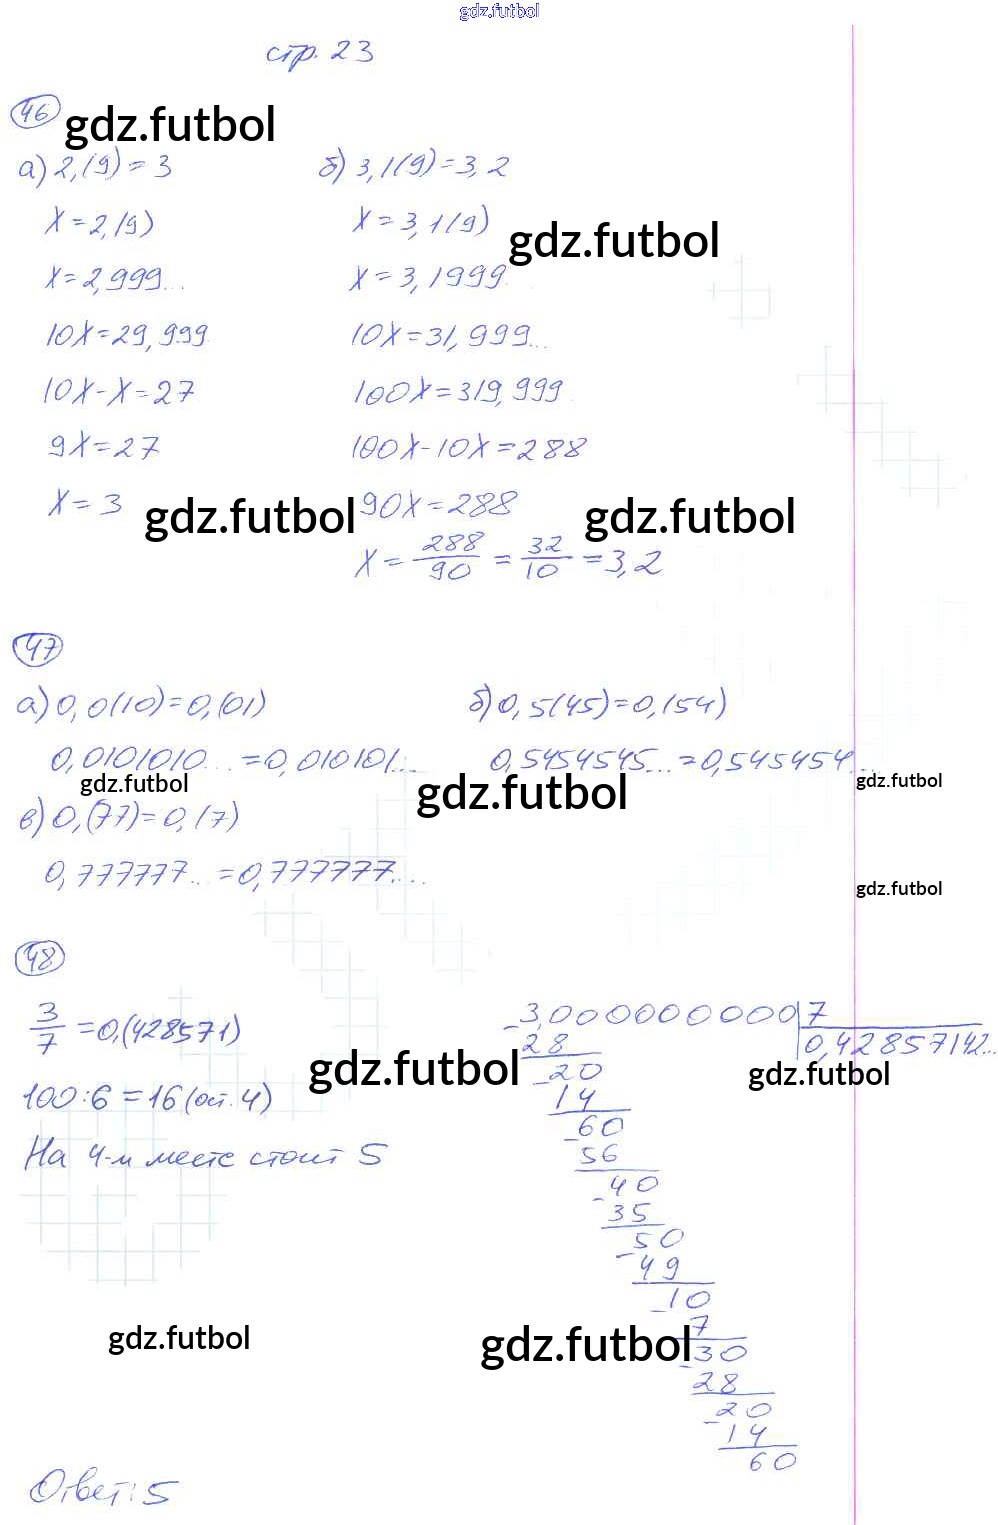 gdz.futbol
стр. 23
46
gdz.futbol
а) 2,(9) = 3
x = 2,(9)
x = 2,999...
10x = 29,999
10x - x = 27
9x = 27
x = 3
б) 3,1(9) = 3,2
x = 3,1(9)
x = 3,1999...
10x = 31,999...
100x = 319,999
100x - 10x = 288
90x = 288
x = 288/90 = 32/10 = 3,2
gdz.futbol
gdz.futbol
gdz.futbol
47
а) 0,0(10) = 0,(01)
0,0101010... = 0,010101...
б) 0,5(45) = 0,(54)
0,5454545... = 0,545454...
gdz.futbol
gdz.futbol
gdz.futbol
в) 0,(77) = 0,(7)
0,777777... = 0,777777...
gdz.futbol
48
3/7 = 0,(428571)
100:6 = 16 (ост. 4)
На 4-м месте стоит 5
3,0000000000 | 7
0,42857142...
- 28
20
- 14
60
- 56
40
- 35
50
- 49
10
- 7
30
- 28
20
- 14
60
gdz.futbol
gdz.futbol
gdz.futbol
gdz.futbol
Ответ: 5